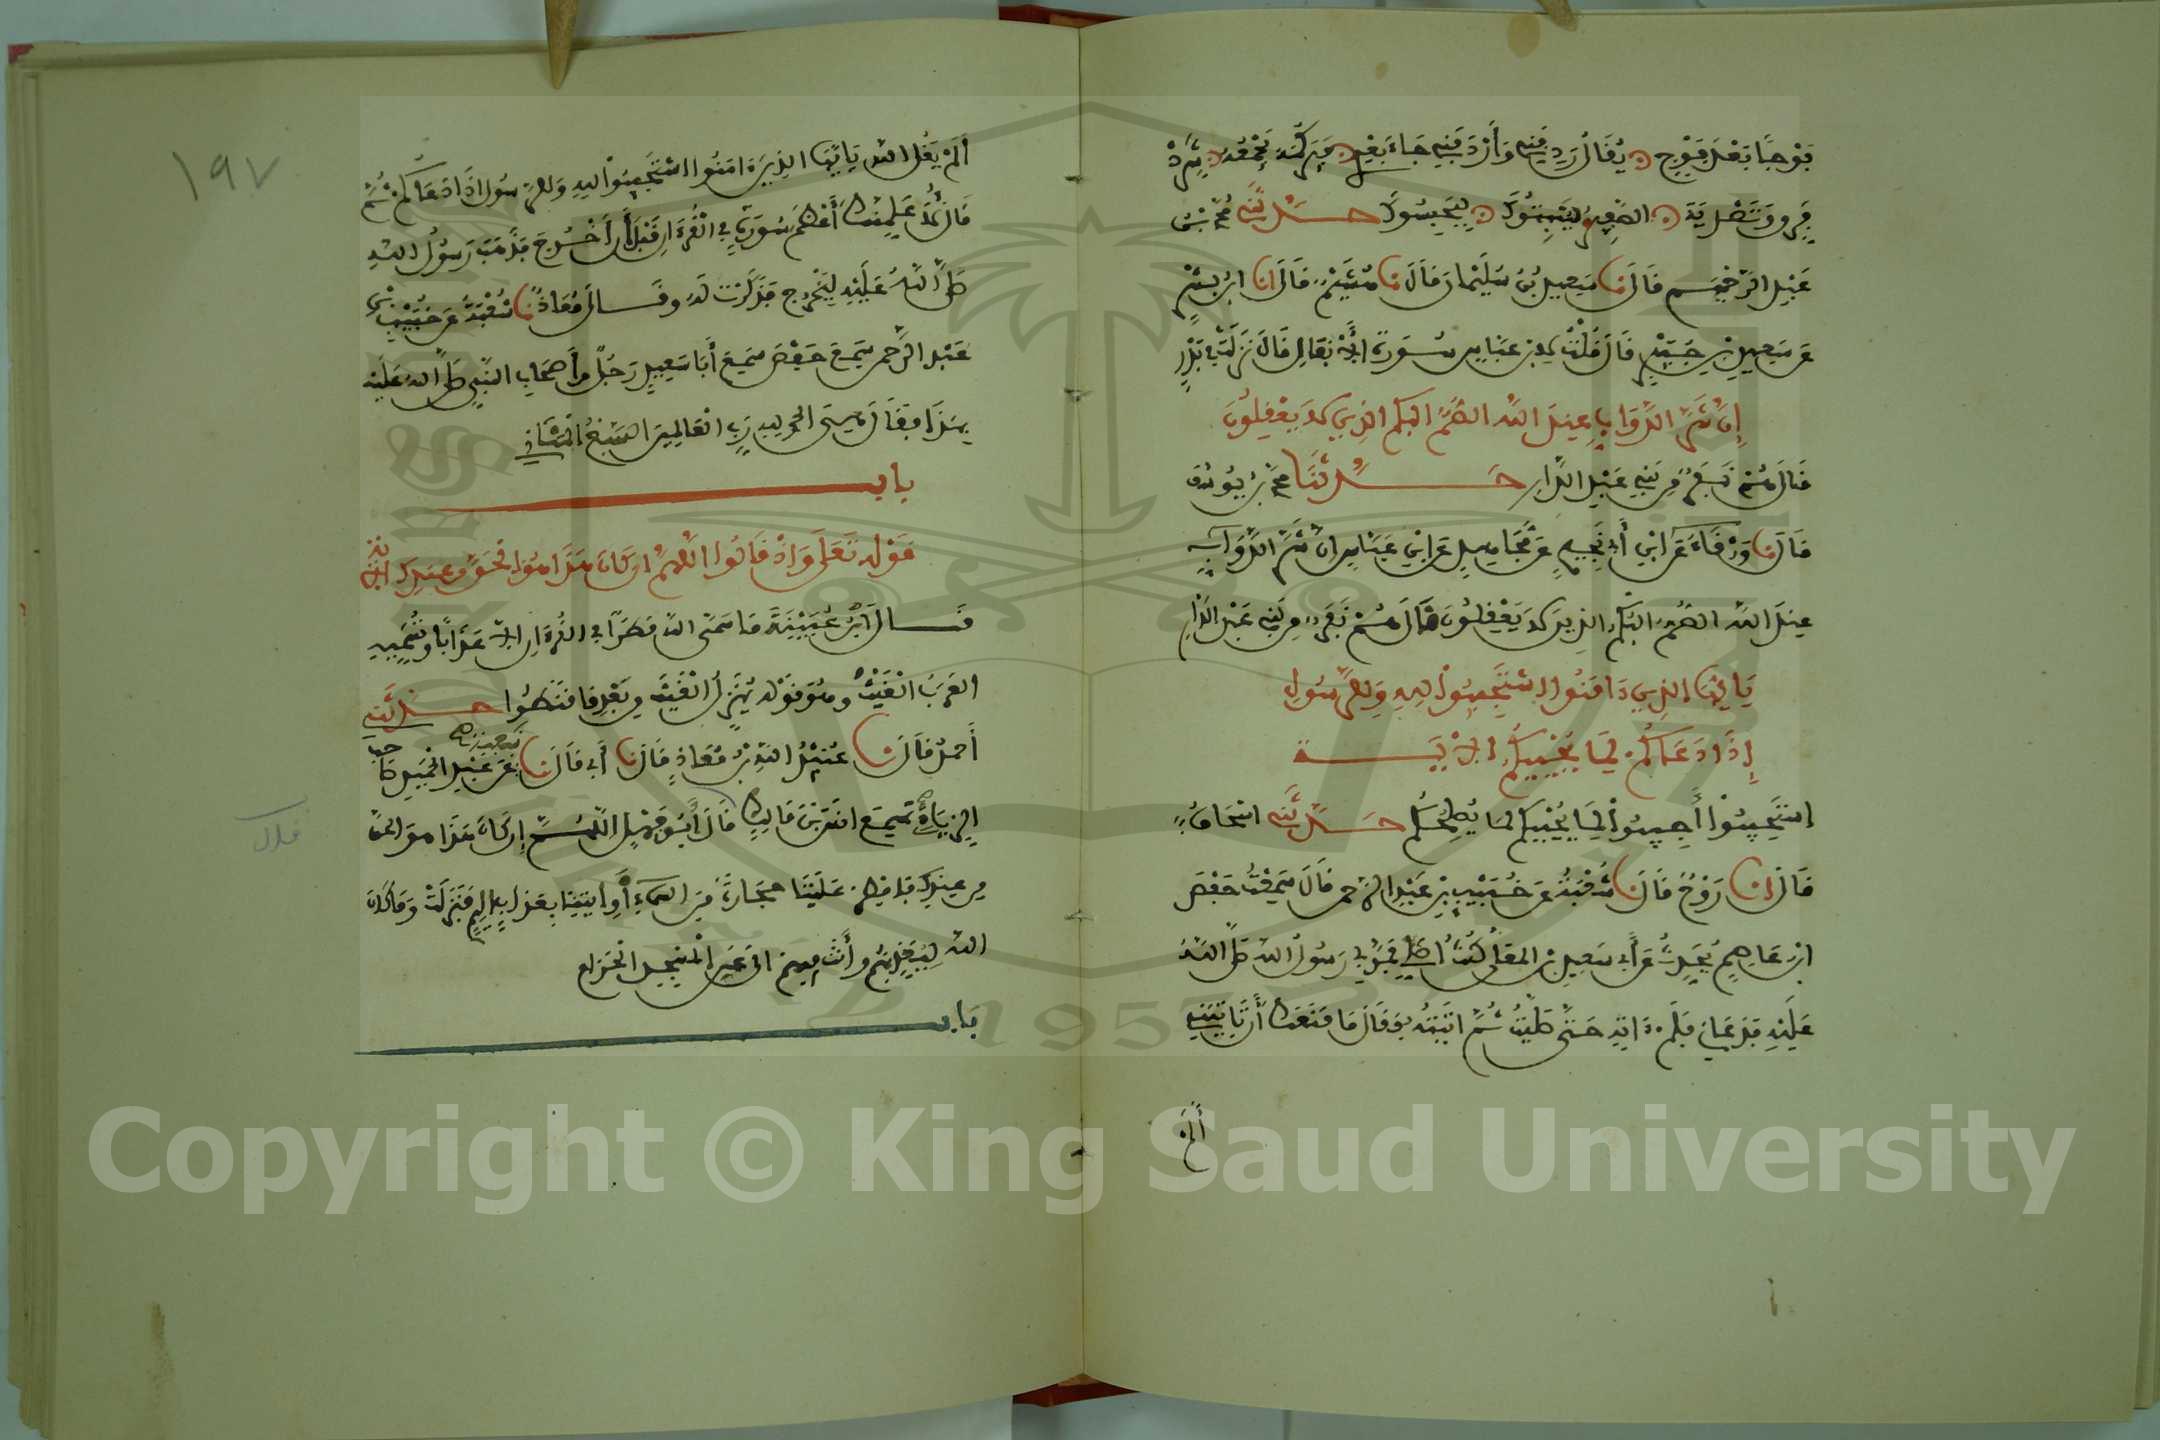 فَوْجًا بَعْدَ فَوْجٍ يُقَالُ رَدِفَنِي وَأَرْدَفَنِي جَاءَ بَعْدِي فَيَرْكُمَهُ يَجْمَعُهُ شَرِّدْ
فَرِّق وَتَصْدِيَةً الصَّفِيرُ لِيُثْبِتُوكَ لِيَحْبِسُوكَ حدثني محمد بن
عَبْدِ الرَّحِيم قَالَ نا سَعِيدُ بْنُ سُلَيْمَان قَالَ نا هُشَيْمٌ قَالَ انا أبو بشْرٍ
عَن سَعِيدِ بْنِ جُبَيْرٍ قَالَ قُلْتُ لابن عَبَّاسٍ سُورَة الأنْفَال قَالَ نَزَلَتْ فِي بَدْرٍ
إِنَّ شَرَّ الدَّوَابِّ عِندَ اللَّه الصُّمُّ البُكْمُ الذِينَ لَا يَعْقِلُونَ
قَالَ هُمْ نَفَرٌ مِن بَنِي عَبْدِ الدَّارِ حَدَّثَنَا محمد بن يُوسُفَ
قَالَ نا وَرْقَاءُ عَن ابْنِ أَبِي نَجِيحٍ عَن مُّجَاهِدٍ عَنِ ابْنِ عَبَّاسٍ إنَّ شَرَّ الدَّوَابِّ
عِندَ اللَّه الصُّمُّ البُكْمُ الذِينَ لَا يَعْقِلُونَ قَالَ هُمْ نَفَرٌ مِن بَنِي عَبْدِ الدَّارِ
يَا أَيُّهَا الذِينَ ءَامَنُوا اسْتَجِيبُوا لِلهِ وَلِلرَّسُولِ
إِذَا دَعَاكُمْ لِمَا يُحْيِيكُمُ الآيَة
اسْتَجِيبُوا أَجِيبُوا لِمَا يُحْيِيكُمْ لِمَا يُصْلِحُكُمْ حدثني اسْحَاقُ
قَالَ انا رَوْحٌ قَالَ نا شُعْبَةُ عَن خُبَيْبِ بْنِ عَبْدِ الرَّحمن قَالَ سَمِعْتُ حَفْصَ
ابْنَ عَاصِمٍ يُحَدِّثُ عَن أَبِي سَعِيدِ بْنِ المعَلَّى كُنْتُ أُصَلِّي فَمَرَّ بِي رَسُولُ اللَّه صَلَّى اللَّهُ
عَلَيْهِ فَدَعَانِي فَلَمْ ءَاتِهِ حَتَّى صَلَّيْتُ ثُمَّ اتَيْتُهُ فَقَالَ مَا مَنَعَكَ أَن تَأتِيَنِي
أَلَمْ
١٩٧
أَلَمْ يَقُلِ اللَّه يَا أَيُّهَا الذِينَ ءَامَنُوا اسْتَجِيبُوا لِلهِ وَلِلرَّسُول إذَا دَعَاكُمْ ثُمَّ
قَالَ لأُعَلِّمَنَّكَ أَعْظَمَ سُورَةٍ فِي القُرْءَانِ قَبْلَ أَنْ أَخْرُجَ فَذَهَبَ رَسُولُ اللهِ
صَلَّى اللهُ عَلَيْهِ لِيَخْرُجَ فَذَكَرْتُ لَهُ وقَالَ مُعَاذٌ نا شُعْبَةُ عَن خُبَيْبِ بْنِ
عَبْدِ الرَّحمن سَمِعَ حَفْصً سَمِعَ أَبَا سَعِيدٍ رَجُلاً مِنْ أَصْحَابِ النَّبِيِّ صَلَّى الله عَلَيْهِ
بِهَذَا فَقَالَ هِيَ الحمد لِلهِ رَبِّ العَالَمِينَ السَّبْعُ المَثَانِي
باب
قَوْلِهِ تَعَلَى وَإذْ قَالُوا اللَّهُمَّ إن كَانَ هَذَا هُوَ الحَقَّ مِنْ عِندِكَ الآيَة
قَالَ ابْنُ عُيَيْنَةَ مَا سَمَّى اللَّهُ مَطَرًا فِي القُرْءَانِ إلَّا عَذَابًا وتُسَمِّيهِ
العَرَبُ الغَيْثَ وهُوَ قَوْلُهُ يُنَزِّلُ الغَيْثَ مِن بَعْدِ مَا قَنَطُوا حدثني
أَحمدُ قَالَ نا عُبَيْدُ اللهِ بْنُ مُعَاذٍ قَالَ نا أَبِي قَالَ نا شعبة عَن عَبْدِ الحَمِيدِ صَاحب
الزِّيَادِيِّ سَمِعَ انَسَ بْنَ مَالِكٍ قَالَ أَبُو جَهْلٍ اللَّهُمَّ إِن كَانَ هَذَا هُوَ الحَقَّ
مِن عِندِكَ فَأَمْطِرْ عَلَيْنَا حِجَارَةً مِنَ السَّمَاءِ أَوِ ايتِنَا بِعَذَابٍ الِيمٍ فَنَزَلَتْ وَمَا كَانَ
الله لِيُعَذِّبَهُمْ وأَنْتَ فِيهِمْ الى عَنِ المَسْجِدِ الحَرَامِ
بَاب
Copyright © King Saud University
1957